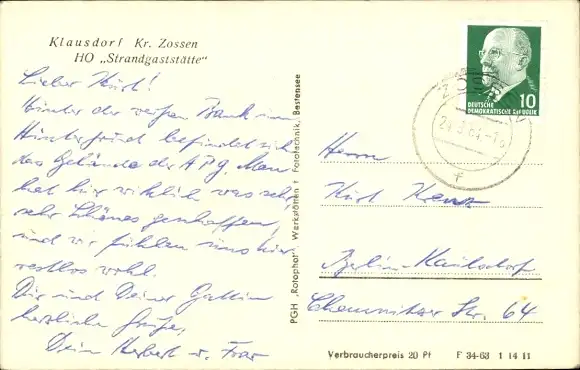 Klausdorf Kr. Zossen
HO „Strandgaststätte"
Lieber Kurt!
Hinter der weißen Bank im
Hintergrund befindet sich
das Gelände der APG. Man
hat hier wirklich was sehr
sehr Schönes geschaffen,
und wir fühlen uns hier
restlos wohl.
Dir und Deiner Gattin
herzliche Grüße,
Dein Herbert u. Frau
PGH „Rotophot", Werkstätten f. Fototechnik, Bestensee
10
DEUTSCHE
DEMOKRATISCHE REPUBLIK
ZOSSEN
Herrn
Kurt
Berlin-Kaulsdorf
Chemnitzer Str. 64
Verbraucherpreis 20 Pf F 34-63 1 14 11